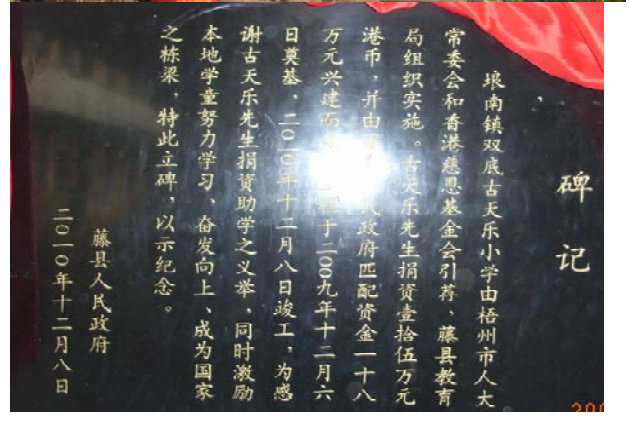 碑记
埌南镇双底古天乐小学由梧州市人大
常委会和香港慈恩基金会引荐、藤县教育
局组织实施。古天乐先生捐资壹拾伍万元
港币，并由 民政府匹配资金一十八
万元兴建 于二00九年十二月六
日奠基，二〇一〇年十二月八日竣工，为感
谢古天乐先生捐资助学之义举，同时激励
本地学童努力学习、奋发向上、成为国家
之栋梁，特此立碑，以示纪念。
藤县人民政府
二〇一〇年十二月八日